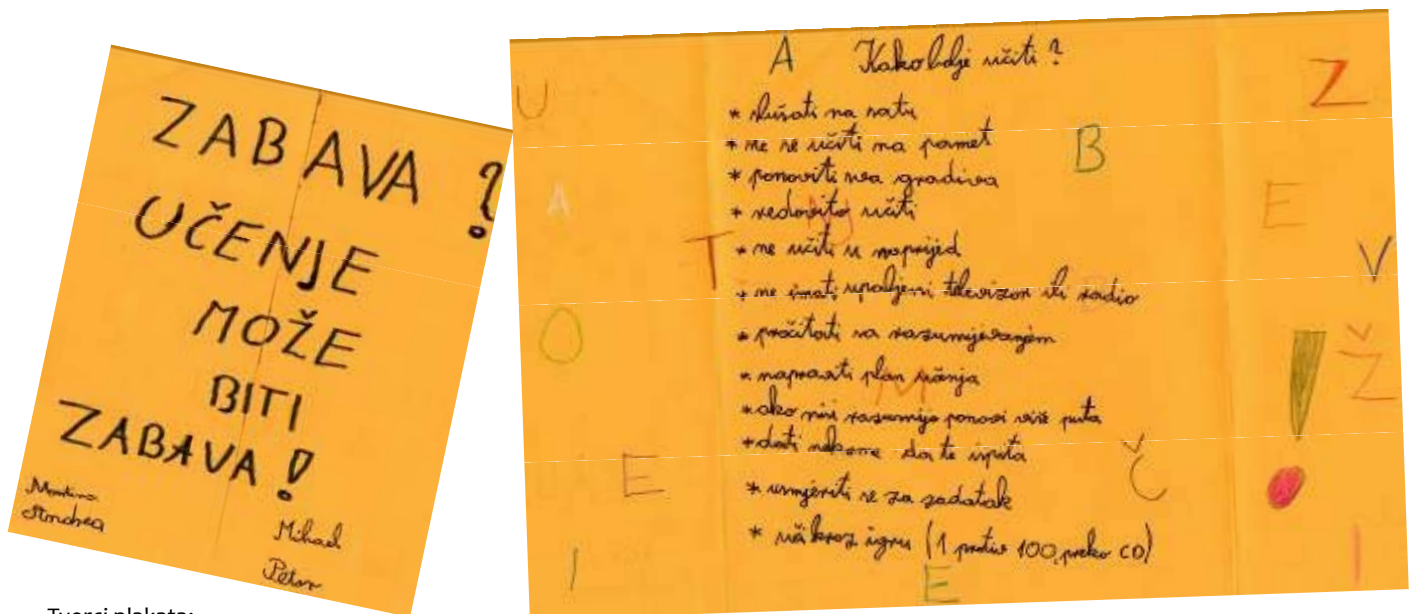 ZABAVA ?
UČENJE
MOŽE
BITI
ZABAVA !
Martina
Andrea
Mihael
Petar
Kako bolje učiti ?
* slušati na satu
* ne se učiti na pamet
* ponoviti sva gradiva
* redovito učiti
* ne učiti u naprijed
* ne imati upaljeni televizor ili radio
* pročitati sa razumijevanjem
* napraviti plan učenja
* ako nisi razumijo ponovi više puta
* dati nekome da te ispita
* usmjeriti se za zadatak
* uči kroz igru (1 protiv 100, preko CD)
U
A
O
T
E
I
A
B
Z
E
V
Ž
!
Č
E
I
M
Tvorci plakata: